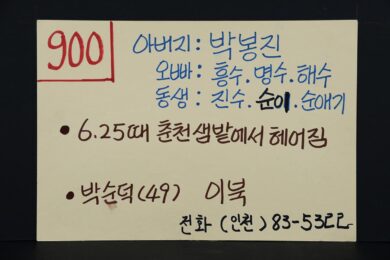 900
아버지: 박봉진
오빠: 흥수.명수.해수
동생: 진수.순이.순애기
• 6.25때 춘천샘밭에서 헤어짐
• 박순덕(49) 이북
전화 (인천) 83-5322